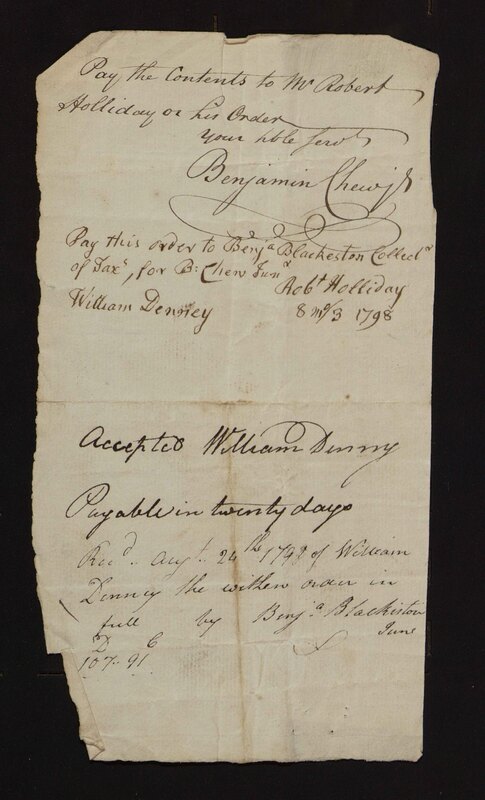 Pay the Contents to Mr Robert
Holliday or his Order
Your hble Servt
Benjamin Chew jr
Pay this order to Benja Blackeston Collectr
of Taxs, for B: Chew Junr
Robt Holliday
William Denney
8 mo/3 1798
Accepted William Denny
Payable in twenty days
Recd. Augt. 24th 1798 of William
Denney the within order in
full by Benja Blackiston
June
D C
107-91